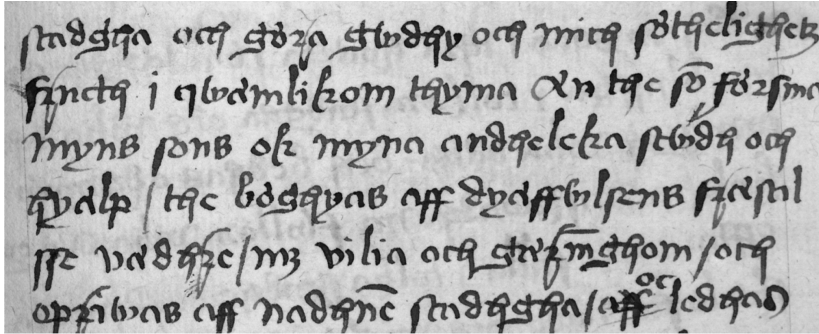 stadgha och gøra gwdhy och mich søthelighetz
fructh i qwæmlikom thyma Æn the sō forsma
myns sons ok myna andheleka stwdh och
hyælp / the bøghyas aff dyæffwlsens fræstil
sse vædhre / mz vilia och gærni̅ghom / och
opriwas aff nadhne̅ stadhgha / aff oc ledhas